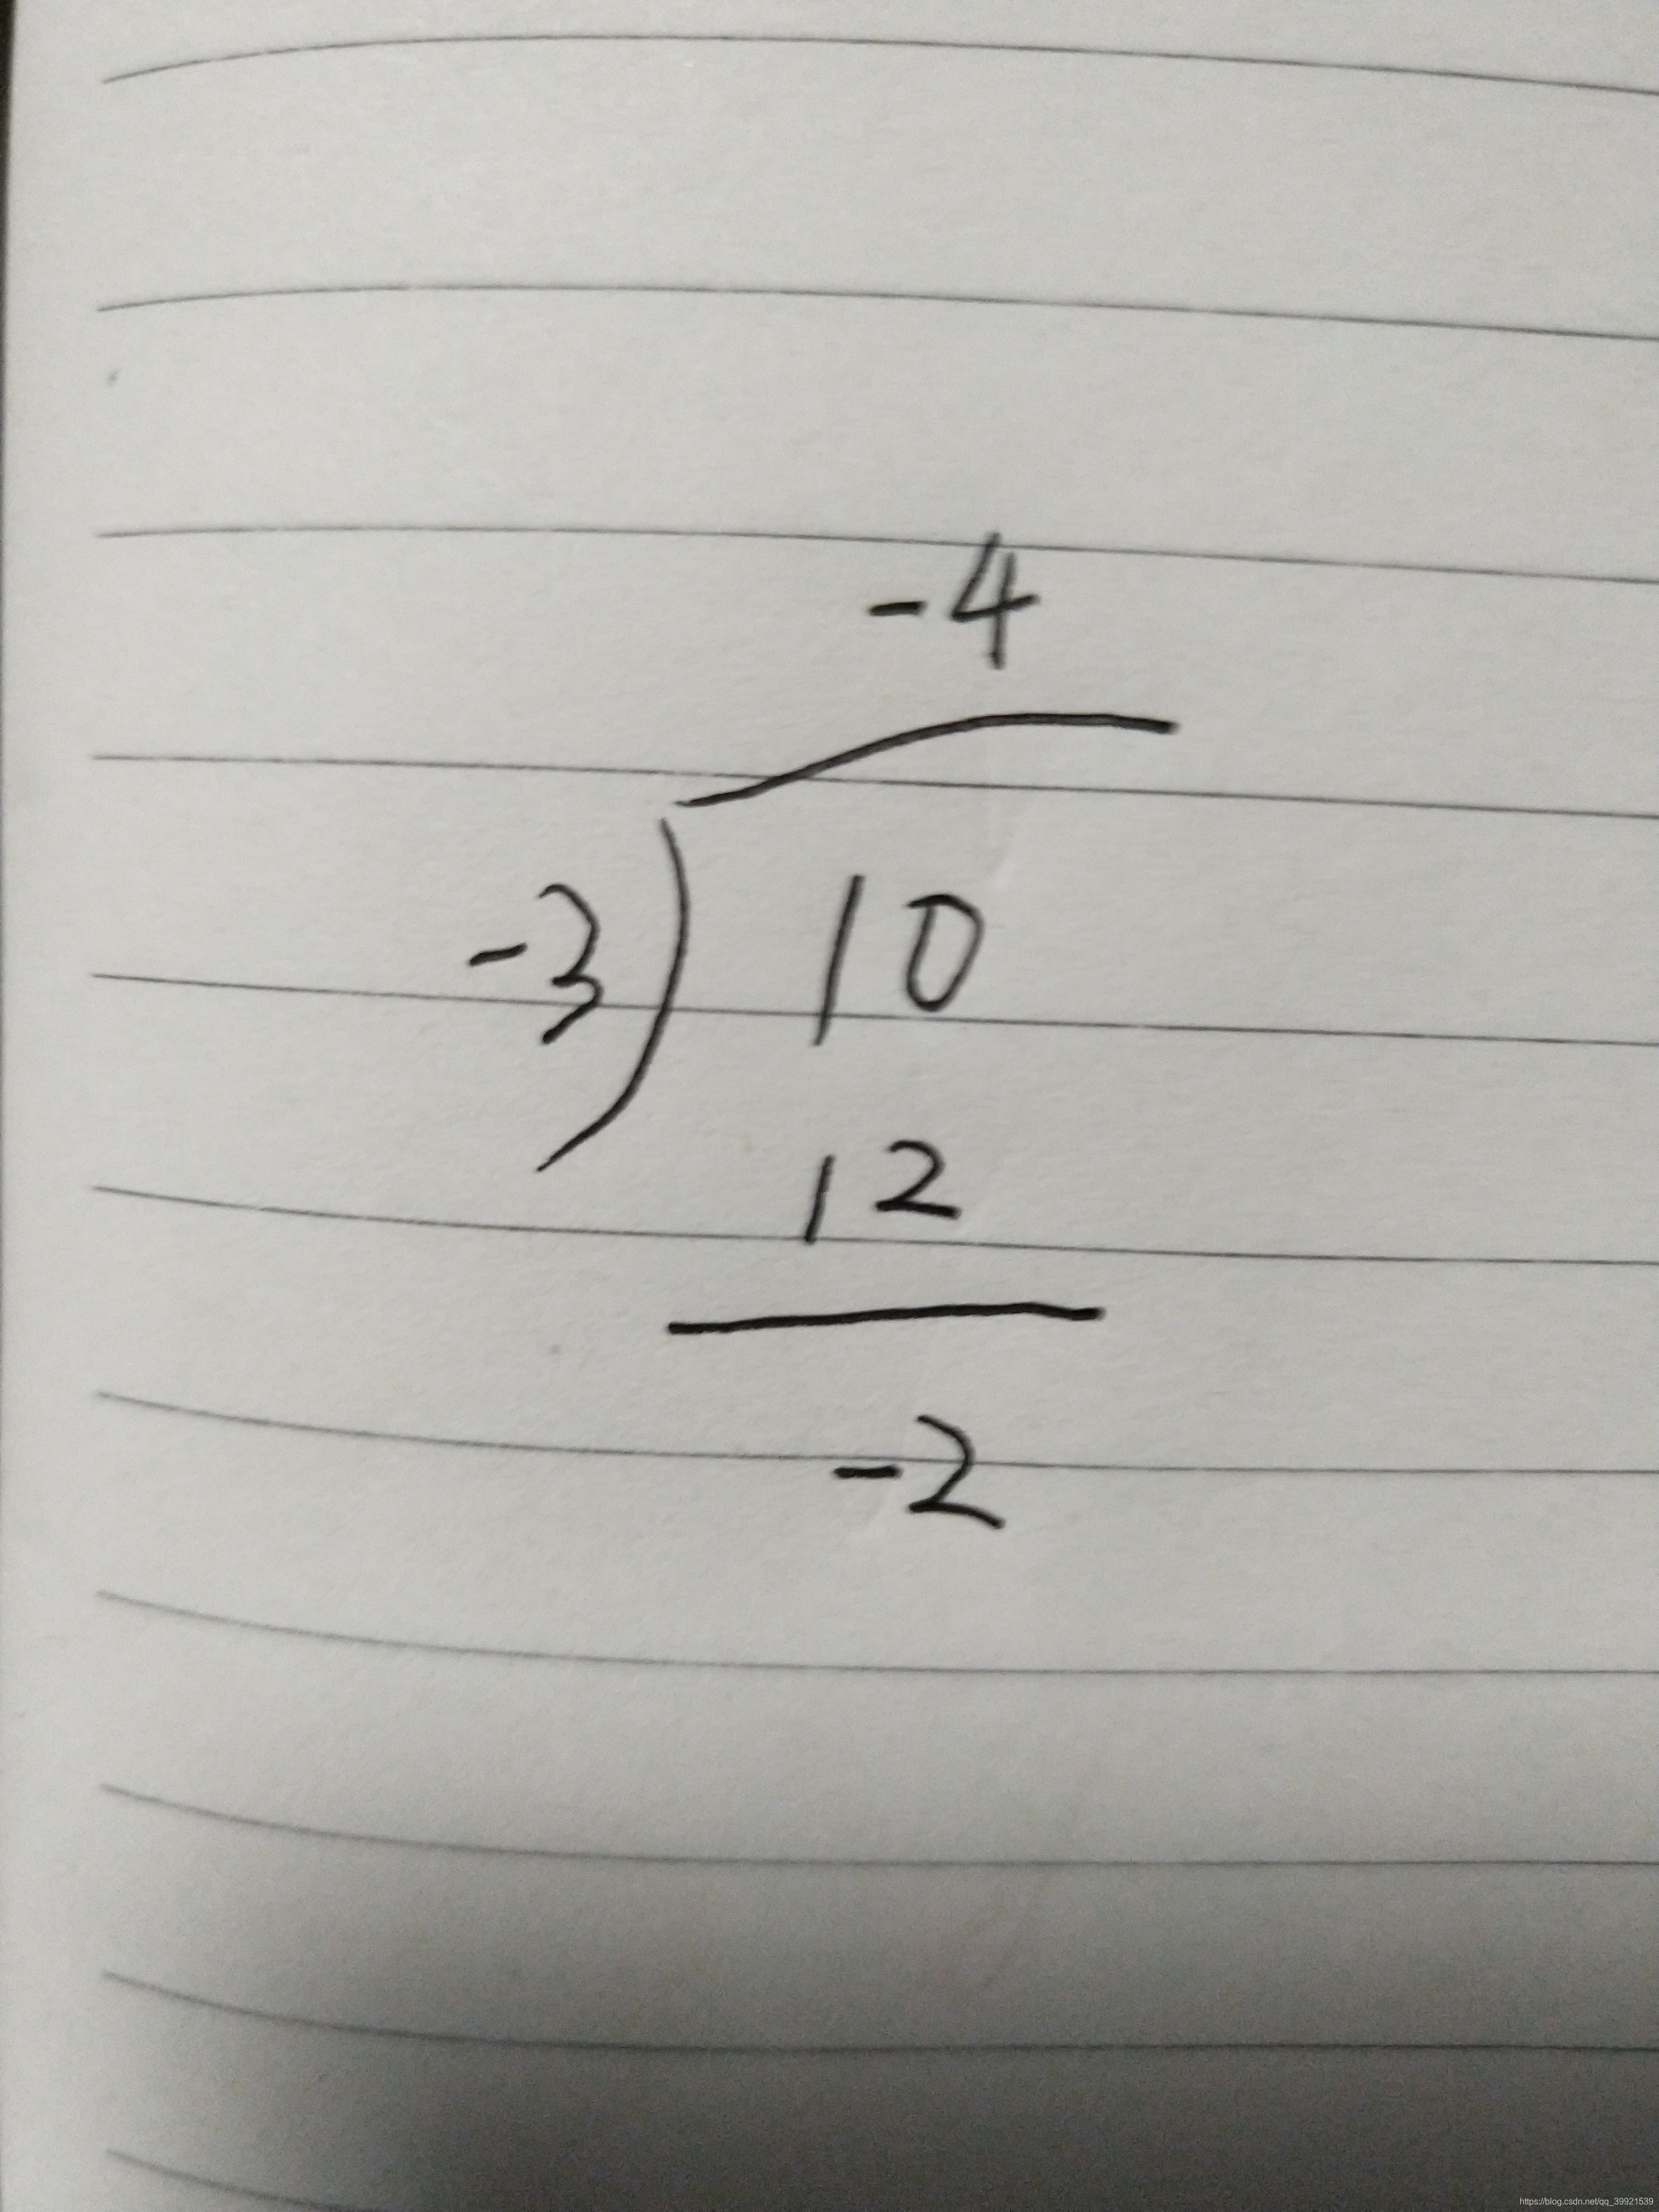 -4
-3) 10
12
-2
https://blog.csdn.net/qq_39921539